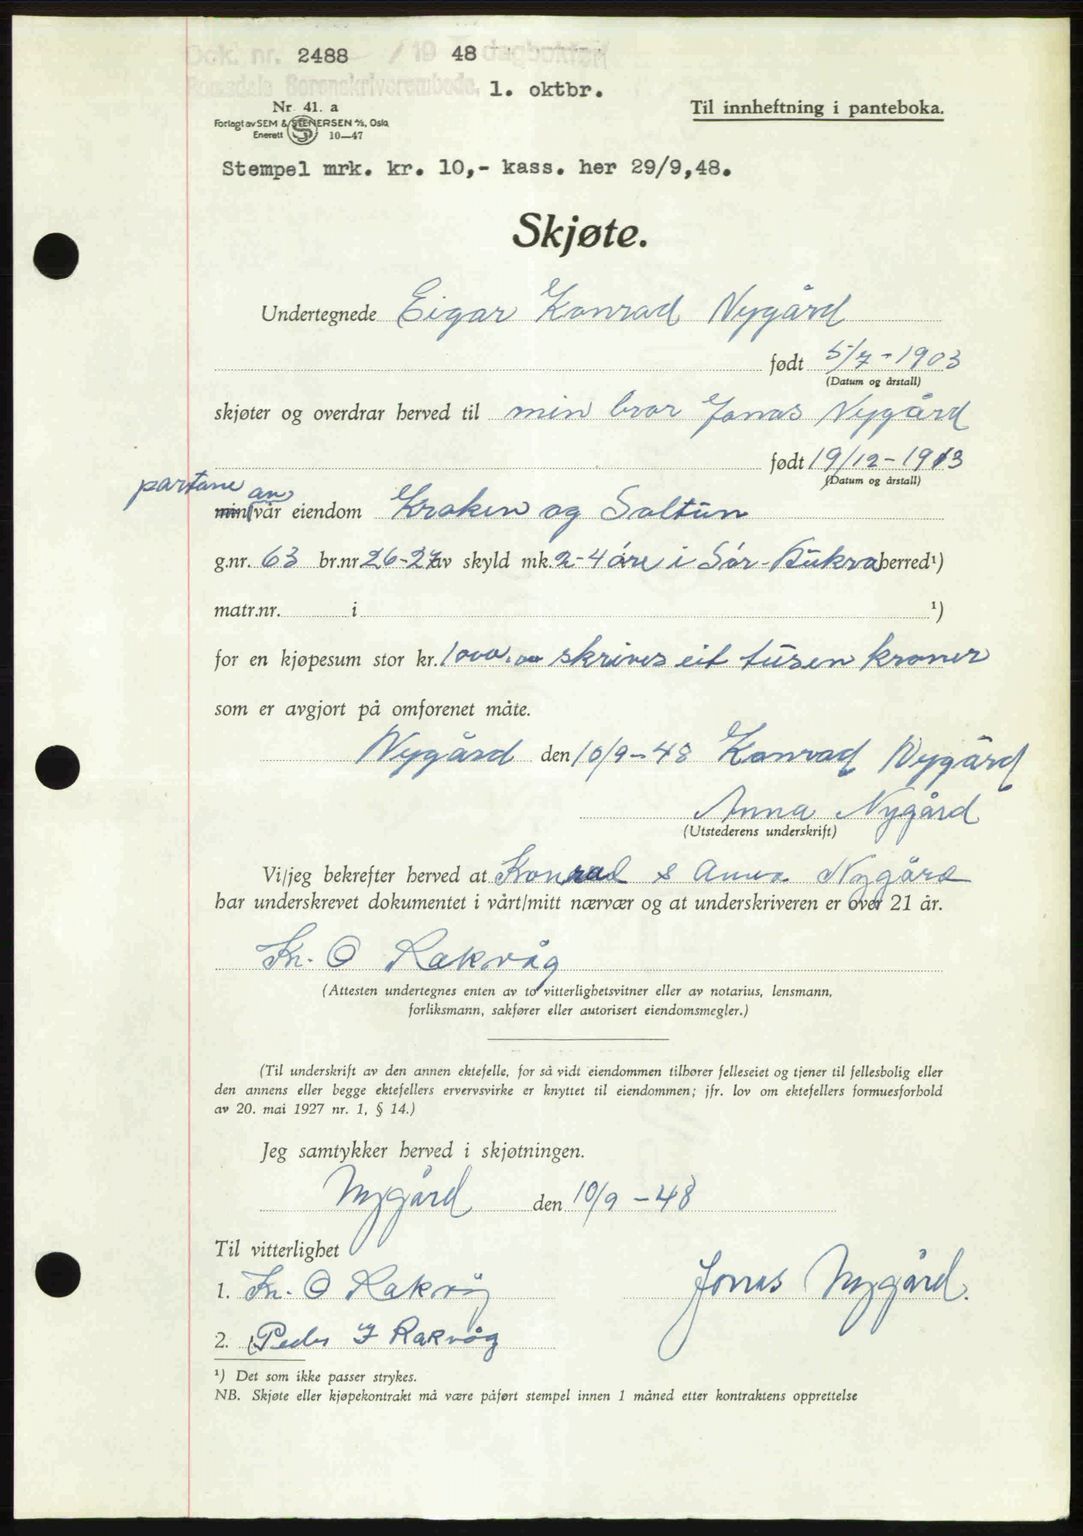 Dok. nr. 2488 / 19 48 dagbokført
Romsdals Sorenskriverembede, 1. oktbr.
Nr 41. a
Forlagt av SEM & STENERSEN A/S, Oslo
Enerett 10—47
Til innheftning i panteboka.
Stempel mrk. kr. 10,- kass. her 29/9,48.
Skjøte.
Undertegnede Eigar Konrad Nygård
født 5/7-1903
(Datum og årstall)
skjøter og overdrar herved til min bror Jonas Nygård
født 19/12-1913
(Datum og årstall)
partane av
min/vår eiendom Kraken og Soltun
g.nr. 63 br.nr 26-27 av skyld mk. 2-4 øre i Sør-Aukra herred¹)
matr.nr. i ¹)
for en kjøpesum stor kr. 1000.00 skrives eit tusen kroner
som er avgjort på omforenet måte.
Nygård den 10/9-48 Konrad Nygård
Anna Nygård
(Utstederens underskrift)
Vi/jeg bekrefter herved at Konrad & Anna Nygård
har underskrevet dokumentet i vårt/mitt nærvær og at underskriveren er over 21 år.
Kr. O Rakvåg
(Attesten undertegnes enten av to vitterlighetsvitner eller av notarius, lensmann,
forliksmann, sakfører eller autorisert eiendomsmegler.)
(Til underskrift av den annen ektefelle, for så vidt eiendommen tilhører felleseiet og tjener til fellesbolig eller
den annens eller begge ektefellers ervervsvirke er knyttet til eiendommen; jfr. lov om ektefellers formuesforhold
av 20. mai 1927 nr. 1, § 14.)
Jeg samtykker herved i skjøtningen.
Nygård den 10/9-48
Til vitterlighet
1. Kr. O Rakvåg Jonas Nygård.
2. Peder I Rakvåg
¹) Det som ikke passer strykes.
NB. Skjøte eller kjøpekontrakt må være påført stempel innen 1 måned etter kontraktens opprettelse